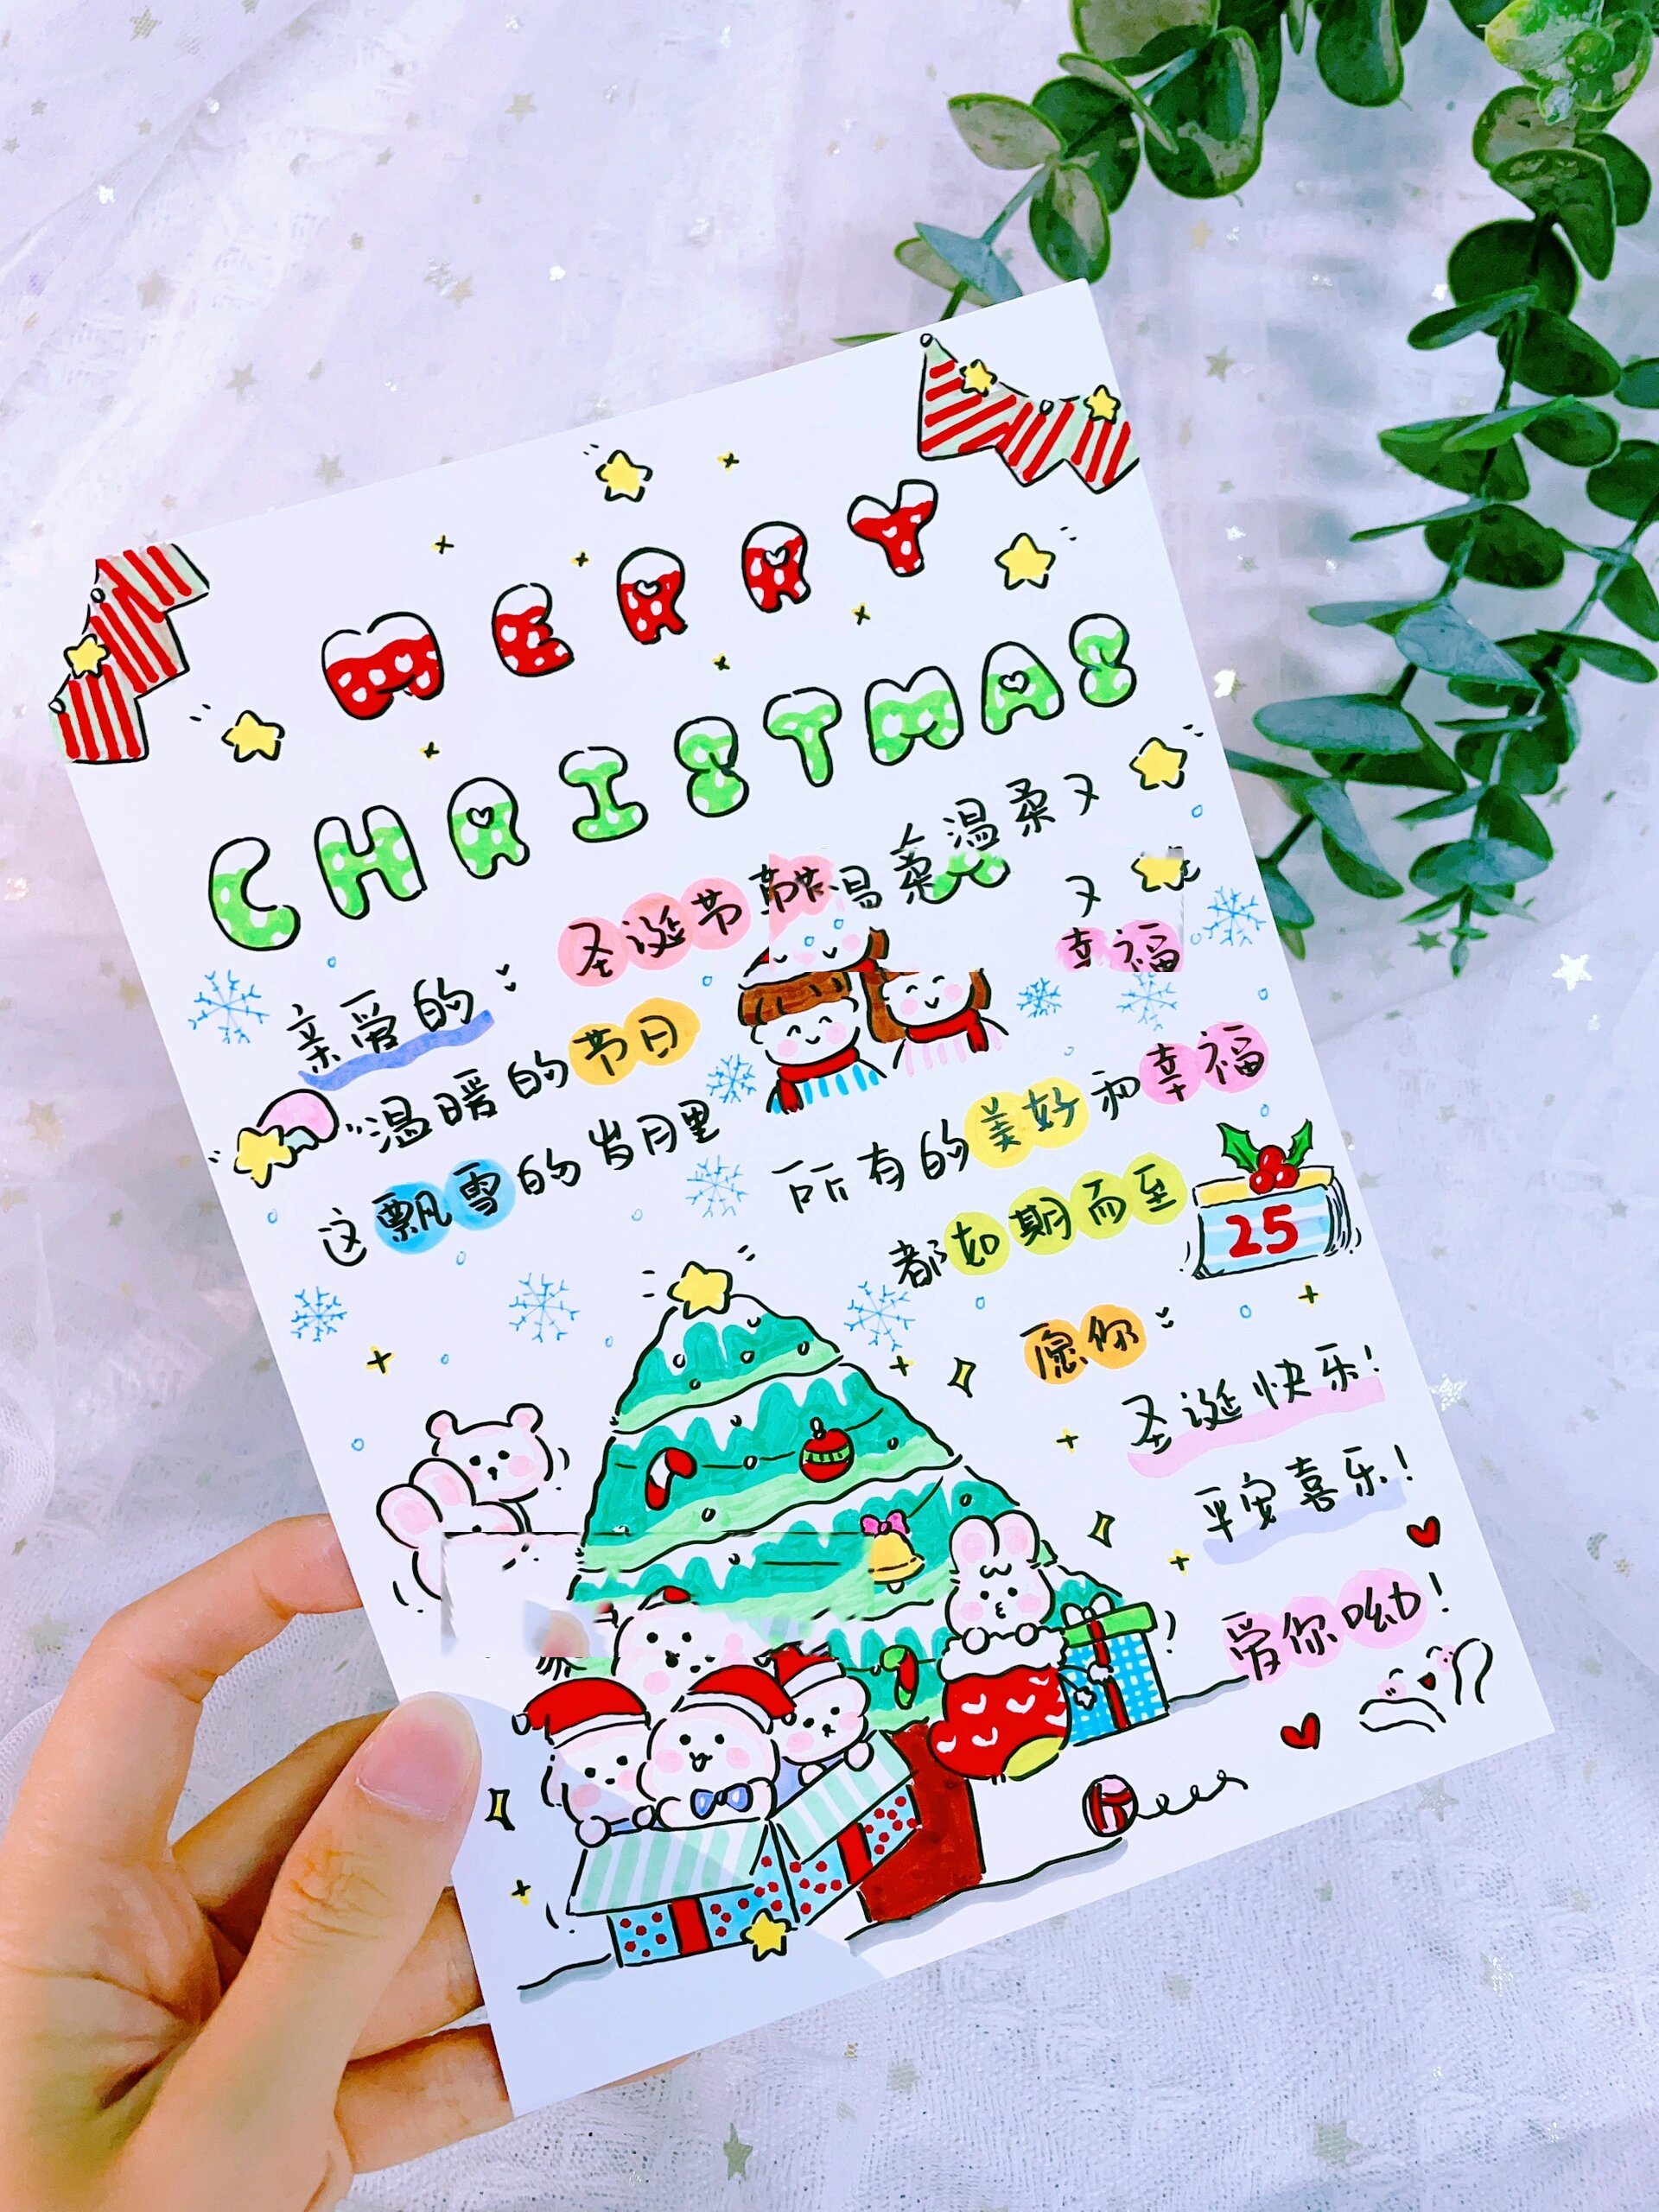 MERRY
CHRISTMAS
亲爱的：
圣诞节 温柔又
又
幸福
温暖的节日
这飘雪的岁月里
所有的美好和幸福
都如期而至
25
愿你：
圣诞快乐！
平安喜乐！
爱你呦！